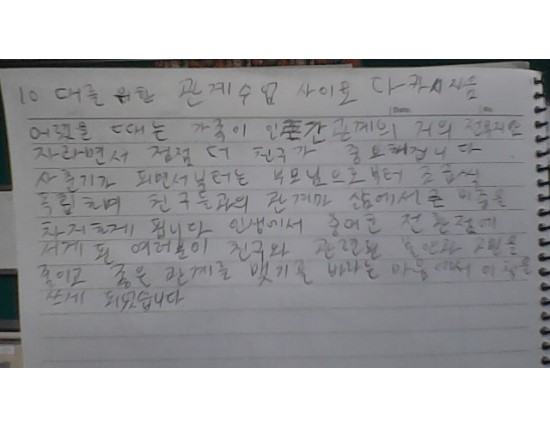 10 대를 위한 관계수업 사이토 다카시 지음
어렸을 때는 가족이 인간관계의 거의 전부지만
자라면서 점점 더 친구가 중요해집니다
사춘기가 되면서부터는 부모님으로부터 조금씩
독립하며 친구들과의 관계가 삶에서 큰 비중을
차지하게 됩니다 인생에서 중요한 전환점에
서게 된 여러분이 친구와 관련된 불안과 고민을
줄이고 좋은 관계를 맺기를 바라는 마음에서 이 책을
쓰게 되었습니다